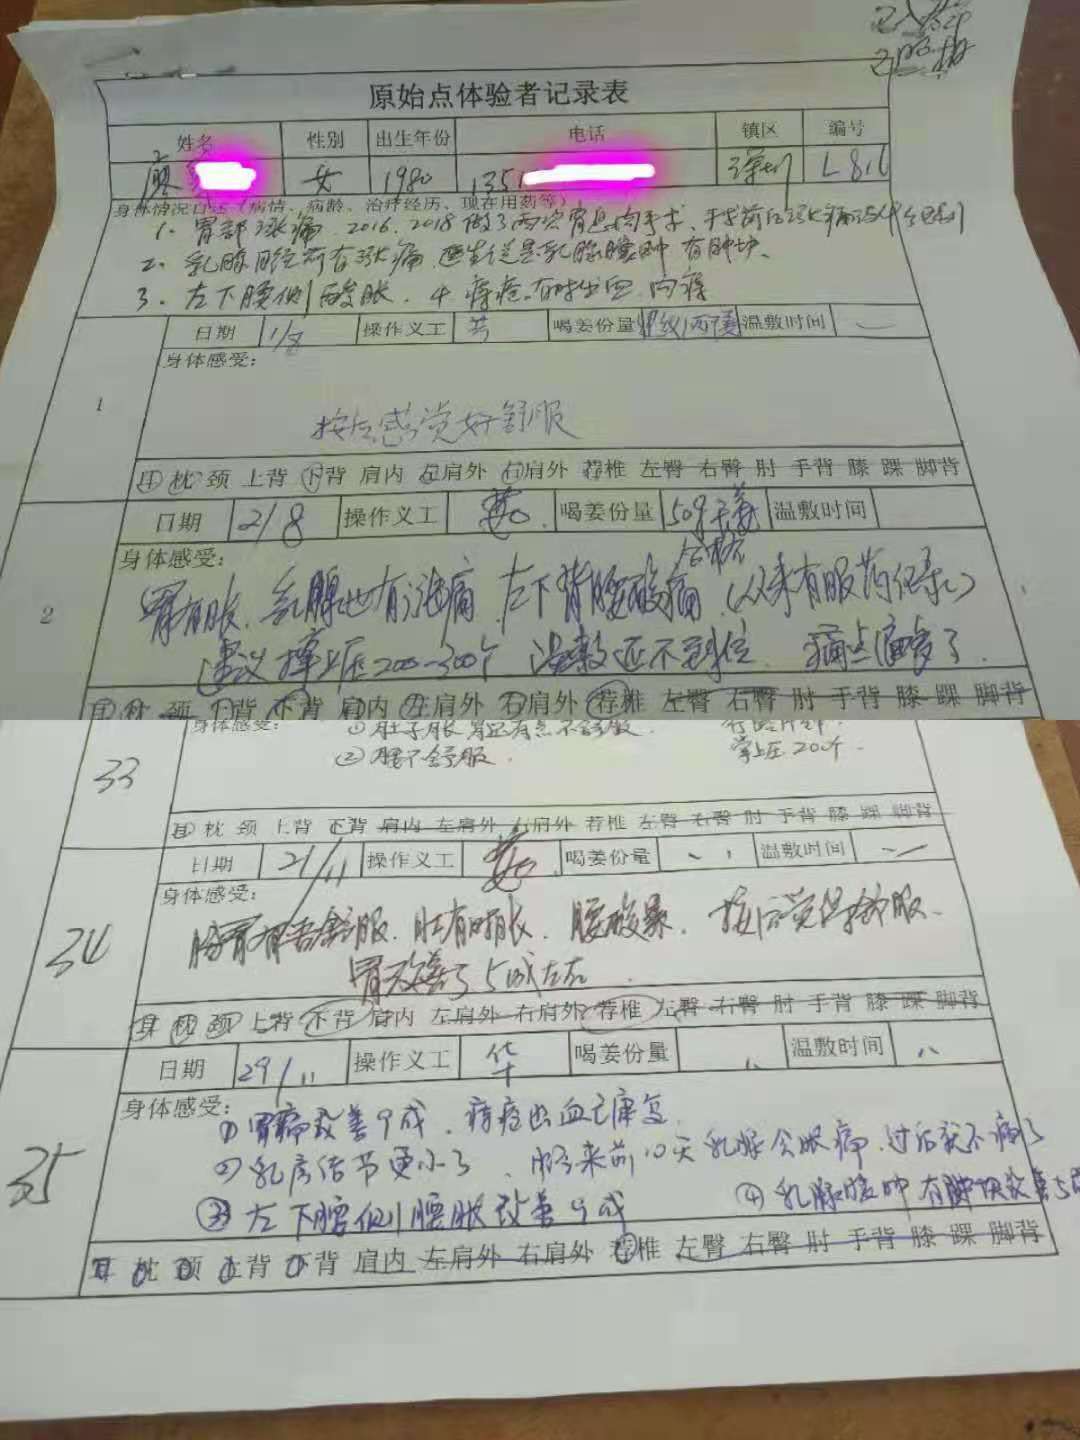 原始点体验者记录表
姓名 性别 出生年份 电话 镇区 编号
廖 女 1980 1351 深圳 L816
身体情况自述（病情、病龄、治疗经历、现在用药等）
1、胃部胀痛，2016、2018做了两次胃息肉手术、手术前后胀痛
2、乳腺 前有胀痛 医生说是乳腺 有肿块、
3、左下腰侧酸胀． 4 痔疮、有时出血，内痔
日期 1/8 操作义工 芳 喝姜份量 温敷时间
身体感受：
1
按后感觉好舒服
耳 枕 颈 上背 下背 肩内 左肩外 右肩外 荐椎 左臀 右臀 肘 手背 膝 踝 脚背
日期 2/8 操作义工 喝姜份量 50g 温敷时间
身体感受：
2
胃有胀、乳腺也有胀痛、左下背腰酸痛（从来有服药 ）
建议掌上压200-300个 温敷还不到位、痛点
耳 枕 颈 上背 下背 肩内 左肩外 右肩外 荐椎 左臀 右臀 肘 手背 膝 踝 脚背
身体感受： ①肚子胀 胃还有点不舒服、
33 ②腰不舒服． 掌上压200个．
耳 枕 颈 上背 下背 肩内 左肩外 右肩外 荐椎 左臀 右臀 肘 手背 膝 踝 脚背
日期 21/11 操作义工 喝姜份量 温敷时间
身体感受：
34
舒服．肚有时胀、腰酸 、按后觉得舒服、
胃改善了5成左右．
耳 枕 颈 上背 下背 肩内 左肩外 右肩外 荐椎 左臀 右臀 肘 手背 膝 踝 脚背
日期 29/11 操作义工 华 喝姜份量 温敷时间
身体感受：
35
①胃痛改善9成、痔疮出血已康复
②乳房结节更小了、 来前10天乳腺会胀痛、过后就不痛了
③左下腰侧腰胀改善9成 ④乳腺 有肿块改善5成
耳 枕 颈 上背 下背 肩内 左肩外 右肩外 荐椎 左臀 右臀 肘 手背 膝 踝 脚背